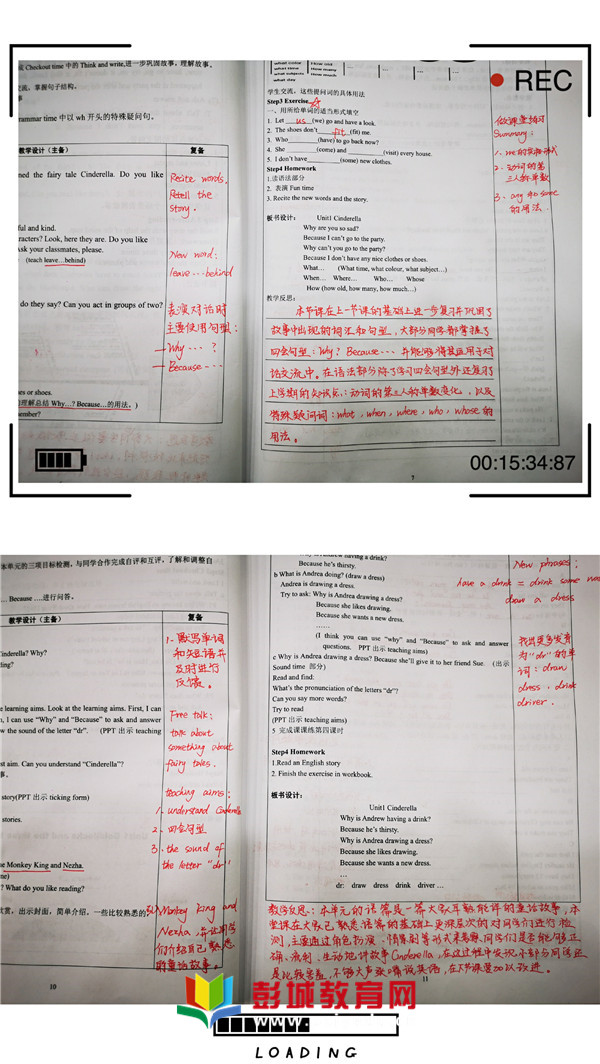 REC
Checkout time 中的 Think and write,进一步巩固故事，理解故事。
交流，掌握句子结构。
grammar time 中以 wh 开头的特殊疑问句。
教学设计（主备） 复备
ned the fairy tale Cinderella. Do you like
Recite words.
Retell the
story.
ful and kind.
racters? Look, here they are. Do you like
Ask your classmates, please.
(teach leave...behind)
New word:
leave...behind
do they say? Can you act in groups of two?
表演对话时
主要使用句型：
Why...?
Because...
es or shoes.
理解总结 Why...? Because...的用法。）
member?
what colour
what time How many
what subjects How much
what day
学生交流，这些提问词的具体用法
Step3 Exercise
一、用所给单词的适当形式填空
1. Let us (we) go and have a look.
2. The shoes don't fit (fit) me.
3. Who (have) to go back now?
4. She (come) and (visit) every house.
5. I don't have (some) new clothes.
Step4 Homework
1.读语法部分
2. 表演 Fun time
3. Recite the new words and the story.
做课堂练习
Summary:
1. we的宾格形式
2. 动词的第
三人称单数
3. any和some
的用法.
板书设计： Unit1 Cinderella
Why are you so sad?
Because I can't go to the party.
Why can't you go to the party?
Because I don't have any nice clothes or shoes.
What… (What time, what colour, what subject…)
When… Where… Who… Whose
How (how old, how many, how much…)
教学反思：
本节课在上一节课的基础上进一步复习并巩固了
故事中出现的词汇和句型，大部分同学都掌握了
四会句型：Why? Because... 并能够将其运用于对
话交流中。在语法部分除了学习四会句型外还复习了
上学期的知识点：动词的第三人称单数变化，以及
特殊疑问词：what, when, where, who, whose的
用法。
7
00:15:34:87
本单元的三项目标检测，与同学合作完成自评和互评，了解和调整自
… Because …进行问答。
教学设计（主备） 复备
Cinderella? Why?
1. 默写单词
和短语并
及时进行
反馈。
e learning aims. Look at the learning aims. First, I can
, I can use "Why" and "Because" to ask and answer
w the sound of the letter "dr". (PPT 出示 teaching
Free talk:
talk about
something about
fairy tales.
st aim. Can you understand "Cinderella"?
story(PPT 出示 ticking form)
stories.
teaching aims:
1. understand Cinderella
2. 四会句型
3. the sound of
the letter "dr"
e Monkey King and Nezha.
? What do you like reading?
出示封面，简单介绍。一些比较熟悉的
Monkey King and
Nezha,
们介绍自己熟悉
的童话故事。
10
Because he's thirsty.
b What is Andrea doing? (draw a dress)
Andrea is drawing a dress.
Try to ask: Why is Andrea drawing a dress?
Because she likes drawing.
Because she wants a new dress.
……
(I think you can use "why" and "Because" to ask and answer
questions. PPT 出示 teaching aims)
c Why is Andrea drawing a dress? Because she'll give it to her friend Sue. (出示
Sound time 部分)
Read and find:
What's the pronunciation of the letters "dr"?
Can you say more words?
Try to read
(PPT 出示 teaching aims)
5 完成课课练第四课时
New phrases:
have a drink = drink some
draw a dress
找出更多发音
为"dr"的单
词：draw
dress, drink
driver.
Step4 Homework
1.Read an English story
2. Finish the exercise in workbook.
板书设计：
Unit1 Cinderella
Why is Andrew having a drink?
Because he's thirsty.
Why is Andrea drawing a dress?
Because she likes drawing.
Because she wants a new dress.
…
dr: draw dress drink driver …
教学反思：本单元的语篇是一篇大家耳熟能详的童话故事，本
堂课在大家已熟悉语篇的基础上更深层次的对同学们进行检
测，主要通过角色扮演、情景剧等形式来考察同学们是否能够正
确、流利、生动地讲故事Cinderella，在这过程中发现小部分同学还
是比较害羞，不够大声张嘴说英语，在下节课要加以改进。
11
彭城教育网
LOADING